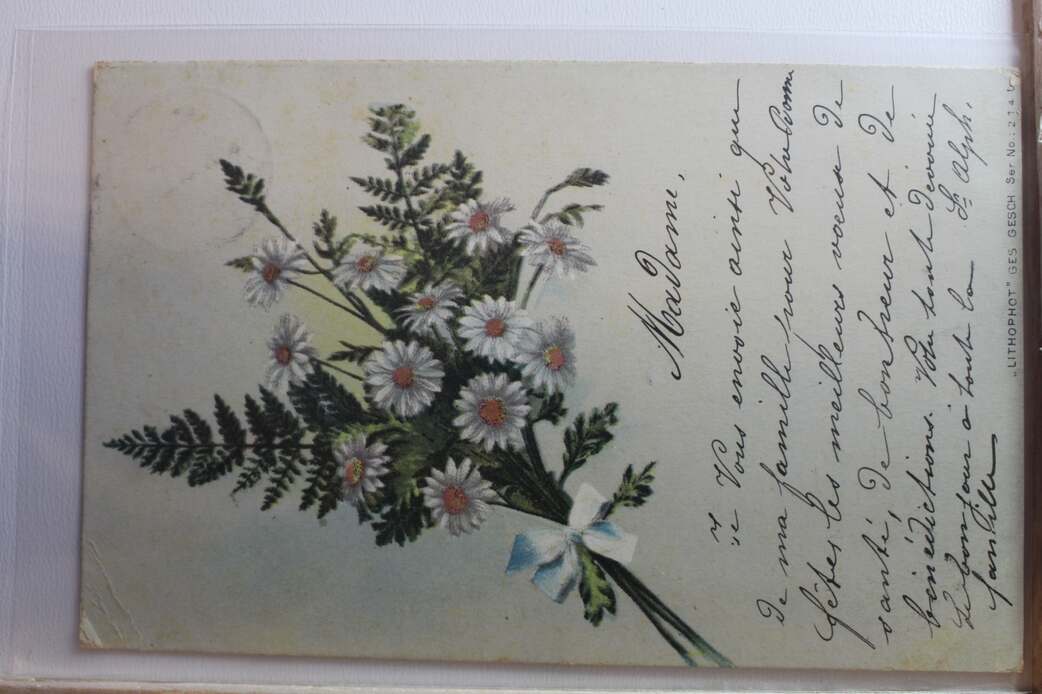 Madame,
je Vous envoie ainsi que
de ma famille pour Votre bonne
fêtes les meilleurs voeux de
santé, de bonheur et de
bénédictions. Votre toute dévouée
Le bonjour à toute la Sr Alph.
famille
"LITHOPHOT" GES GESCH Ser No: 214